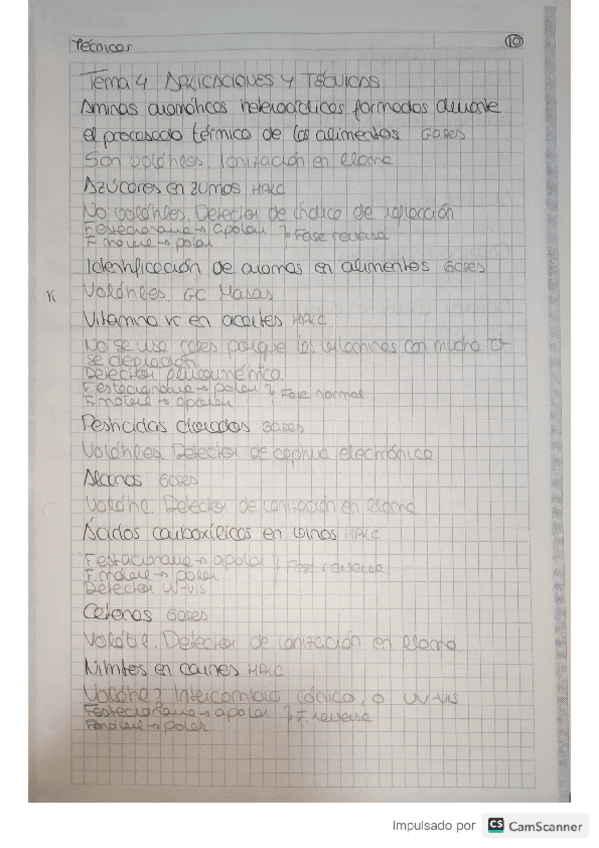 Técnicas
10
Tema 4 APLICACIONES Y TÉCNICAS
Aminas aromáticas heterocíclicas formadas durante
el procesado térmico de los alimentos Gases
Son volátiles. Ionización en llama
Azúcares en zumos HPLC
No volátiles. Detector de índice de refracción
F estacionaria → apolar } Fase reversa
F móvil → polar
Identificación de aromas en alimentos Gases
Volátiles. GC Masas
K
Vitamina K en aceites HPLC
No se usa gases porque las vitaminas con mucha Tª
se degradan
Detector
F estacionaria → polar } Fase normal
F móvil → apolar
Pesticidas clorados Gases
Volátiles. Detector de captura electrónica
Alcanos Gases
Volátil. Detector de ionización en llama
Ácidos carboxílicos en vinos HPLC
F estacionaria → apolar } Fase reversa
F móvil → polar
Detector UV-vis
Cetonas Gases
Volátil. Detector de ionización en llama
Nitritos en carnes HPLC
Volátil? Intercambio iónico, o UV-vis
F estacionaria → apolar } F. reversa
F móvil → polar
Impulsado por CS CamScanner